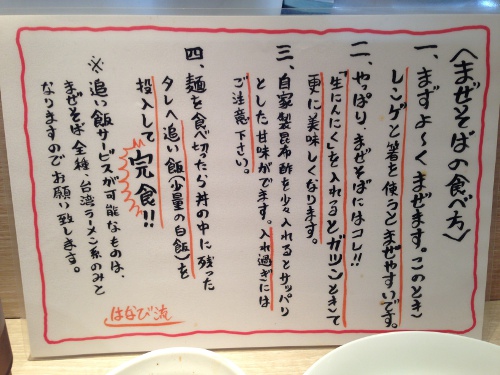 〈まぜそばの食べ方〉
一、まずよ〜くまぜます。このとき
レンゲと箸を使うとまぜやすいです。
二、やっぱり、まぜそばにはコレ!!
「生にんにく」を入れるとガツンときて
更に美味しくなります。
三、自家製昆布酢を少々入れるとサッパリ
とした甘味がでます。入れ過ぎには
ご注意下さい。
四、麺を食べ切ったら丼の中に残った
タレへ追い飯(少量の白飯)を
投入して完食!!
※追い飯サービスが可能なものは、
まぜそば全種、台湾ラーメン系のみと
なりますのでお願い致します。
はなび流